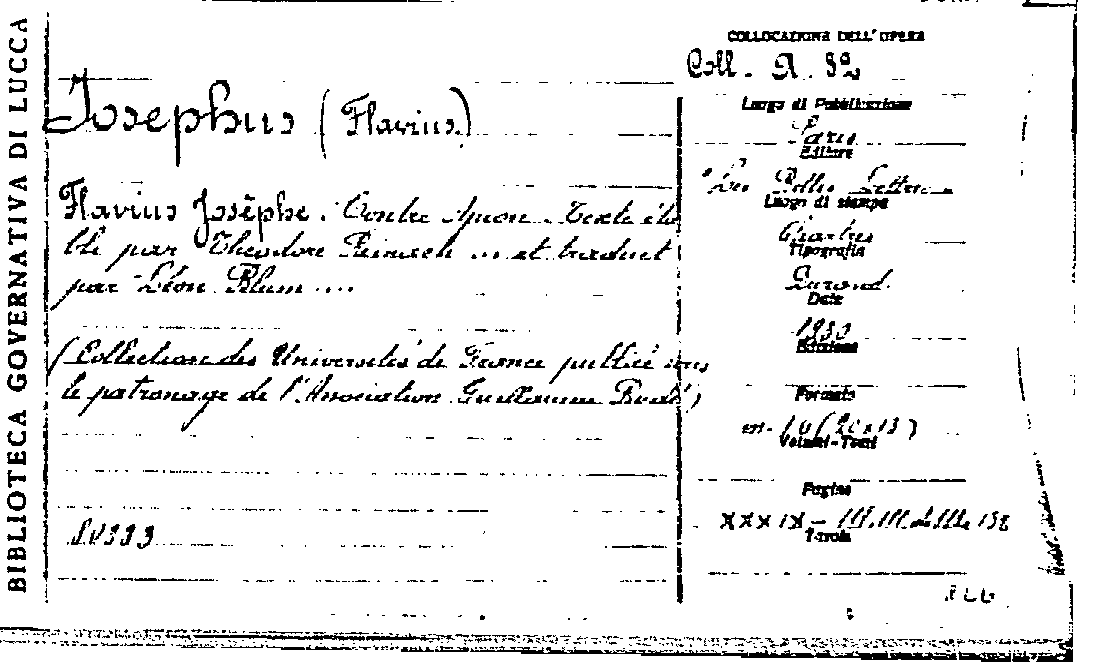 BIBLIOTECA GOVERNATIVA DI LUCCA
COLLOCAZIONE DELL'OPERA
Coll. A.
Josephus (Flavius)
Luogo di Pubblicazione
Paris
Editore
Les Belles Lettres
Luogo di stampa
Chartres
Tipografia
Durand
Data
1930
Edizione
Formato
in-16 (20x13)
Volumi-Tomi
Pagine
XXXIX -
Tavole
Flavius Josèphe. Contre Apion. Texte éta
bli par Théodore Reinach ... et traduit
par Léon Blum ...
(Collection des Universités de France publié sous
le patronage de l'Association Guillaume Budé)